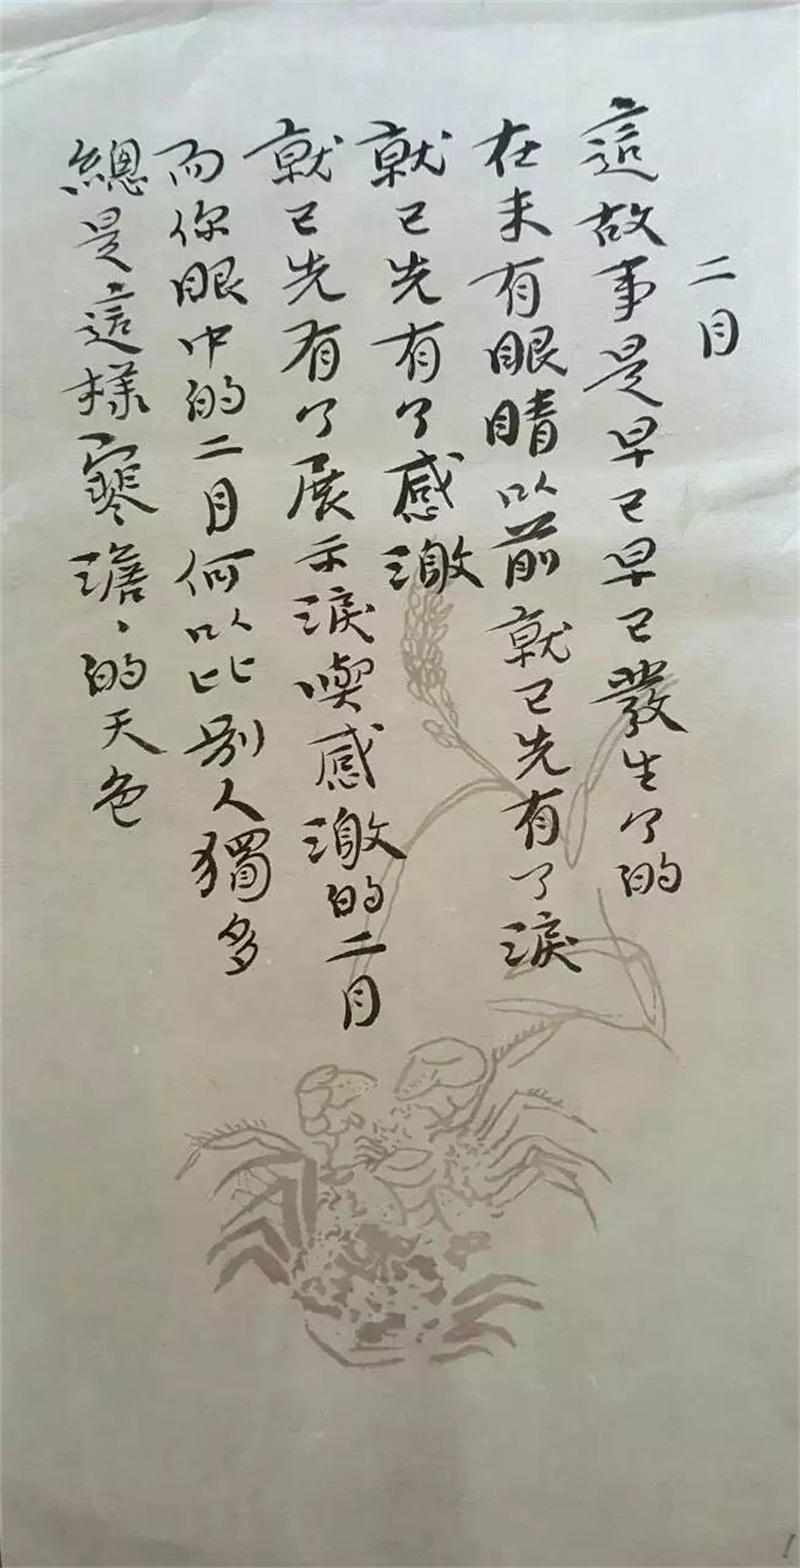 二月
這故事是早已早已發生了的
在未有眼睛以前就已先有了淚
就已先有了感激
就已先有了展示淚喫感激的二月
而你眼中的二月何以比別人獨多
總是這樣寒澹、的天色